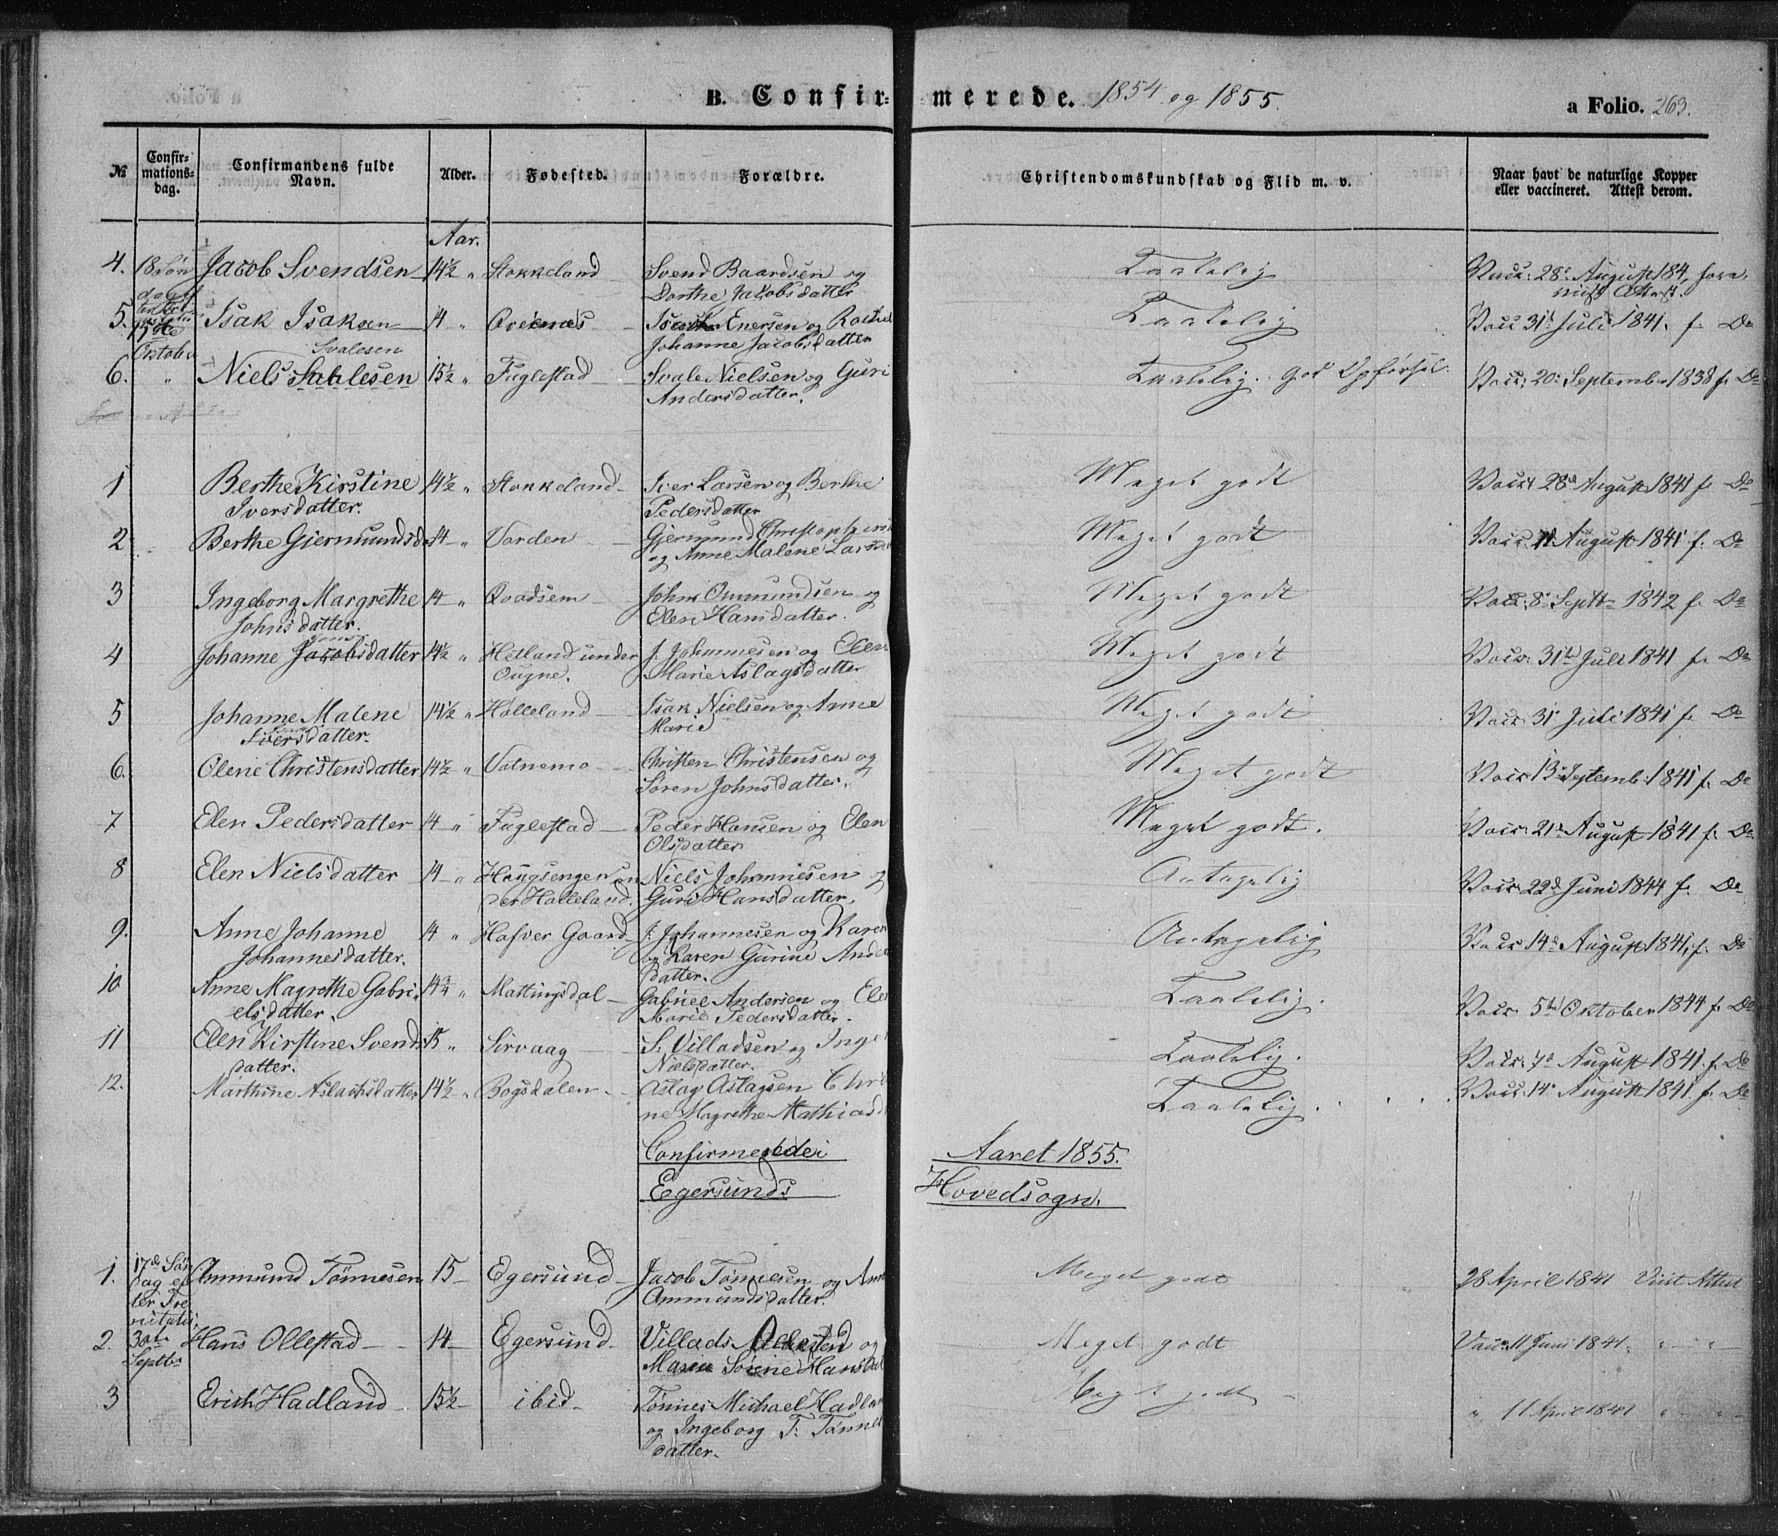 B. Confirmerede. 1854 og 1855. a Folio. 263.
№ Confirmationsdag. Confirmandens fulde Navn. Alder. Fødested. Forældre. Christendomskundskab og Flid m. v. Naar havt de naturlige Kopper eller vaccineret. Attest derom.
Aar.
4. 18 Søn Jacob Svendsen 14½ " Stokkeland Svend Baardsen og Taalelig Vacc: 28 August 184
Dorthe Jakobsdatter
5. Isak Isaksen 14 " Isak Enersen og Taalelig Vacc 31 Juli 1841. f. Do
15de Oktober Johanne Jacobsdatter
Svalesen
6. " Niels 15½ " Fuglestad Svale Nielsen og Guri Taalelig. god Opførsel. Vacc: 20 September 1838 f. Do
Andersdatter.
1 Berthe Kirstine 14½ " Stokkeland Iver Larsen og Berthe Meget godt Vacc: 28 August 1841 f. Do
Iversdatter. Pedersdatter
2 Berthe Gjermundsda 14 " Varden Gjermund Meget godt Vacc: 11 August 1841 f. Do
og Anne Malene
3 Ingeborg Margrethe 14 " Qvadsem John Ommundsen og Meget godt Vacc: 8 Septb 1842 f. Do
Johnsdatter. Elen Hansdatter.
4 Johanne Jacobsdatter 14½ " Hetland under J. Johannesen og Elen Meget godt Vacc: 31te Juli 1841 f. Do
Ougne. Marie Aslagsdatter
5 Johanne Malene 14½ " Hølleland Isak Nielsen og Anne Meget godt Vacc: 31 Juli 1841 f. Do
Iversdatter. Marie
6. Olene Christensdatter 14½ " Vatnemo Christen Christensen og Meget godt Vacc: 13 Septemb: 1841 f. Do
Søren Johnsdatter.
7 Elen Pedersdatter 14 " Fuglestad Peder Hansen og Elen Meget godt. Vacc: 21 August 1841 f. Do
Olsdatter
8 Elen Nielsdatter 14 " Haugsengen un Niels Johannesen og Antagelig Vacc: 22d Juni 1844 f. Do
der Hølleland. Guri Hansdatter.
9. Anne Johanne 14 " Hafver Gaard J. Johannesen og Karen Antagelig Vacc 14de August 1841, f. Do
Johannesdatter. og Karen Gurine Anders
datter.
10 Anne Magrethe Gabri 14¾ " Mattingsdal Gabriel Andersen og Elen Taalelig. Vacc: 5te Oktober 1844 f. Do
elsdatter. Marie Pedersdatter.
11 Elen Kirstine Svends 15 " Sirvaag S. Villadsen og Inge Taalelig. Vacc: 7de August 1841. f. Do
datter. Nielsdatter.
12. Marthine Aslachsdatter 14½ " Bøgsdalen Aslag Aslagsen Chri Taalelig. Vacc: 14 August 1841. f. Do
ne Magrethe Mathiasd
Confirmerede i Aaret 1855.
Egersunds Hovedsogn.
1. 17de Søn Ommund Tønnesen 15 Egersund Jacob Tønnesen og Anne Meget godt 28 April 1841 Viist Attest
dag ef Ommundsdatter.
ter Tri
nitatis,
2. 30te Hans Ollestad 14 Egersund Villads Ollestad og Meget godt Vacc: 11 Juni 1841. " "
Septbr Maren Sørine Hansdat
3 Erich Hadland 15½ ibid Tønnes Michael Hadland Meget godt " 11 April 1841 " "
og Ingeborg T. Tønnes
datter.